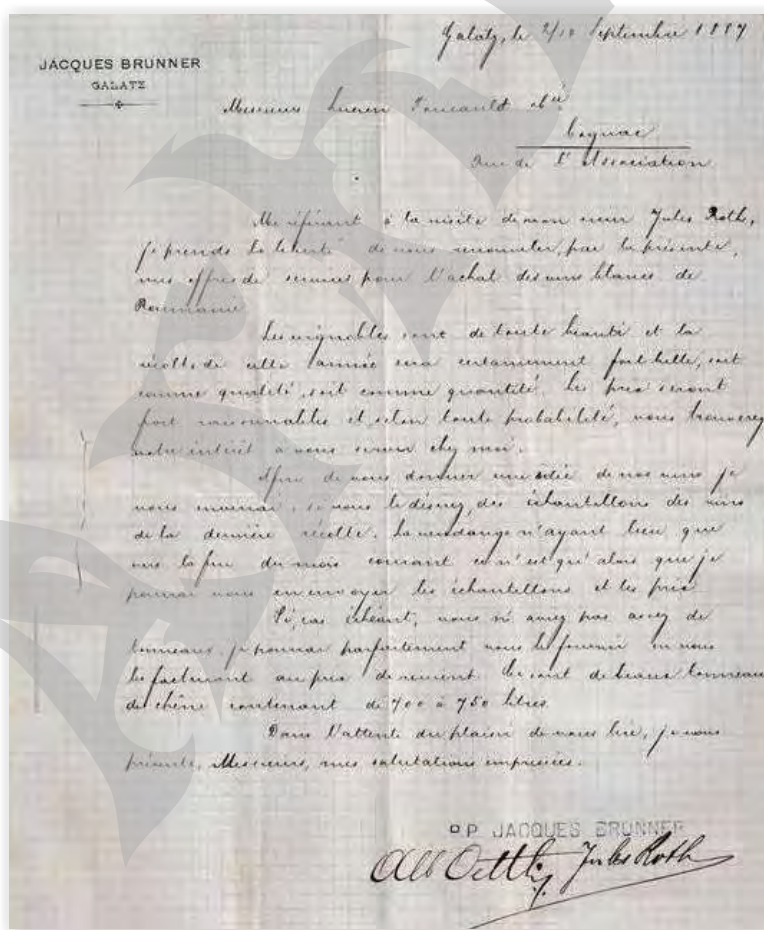 Galatz, le 2/10 Septembre 1897
JACQUES BRUNNER
GALATZ
Messieurs Lucien Foucauld & Cie
Cognac
Rue de l'Association
Me référant à la visite de mon Jules Roth,
je prends la liberté de vous renouveler, par la présente,
mes offres de services pour l'achat des vins blancs de
Roumanie.
Les vignobles sont de toute beauté et la
récolte de cette année sera certainement fort belle, soit
comme qualité, soit comme quantité. Les prix seront
fort raisonnables et, selon toute probabilité, vous trouverez
votre intérêt à vous servir chez moi.
Afin de vous donner une idée de nos vins je
vous enverrai, si vous le désirez, des échantillons des vins
de la dernière récolte. La vendange n'ayant lieu que
vers la fin du mois courant ce n'est qu'alors que je
pourrai vous en envoyer les échantillons et les prix.
Si, cas échéant, vous n'avez pas assez de
tonneaux, je pourrai parfaitement vous les fournir en vous
les facturant au prix de revient. Ce sont de beaux tonneaux
de chêne contenant de 700 à 750 litres.
Dans l'attente du plaisir de vous lire, je vous
présente, Messieurs, mes salutations empressées.
PP JACQUES BRUNNER
Jules Roth